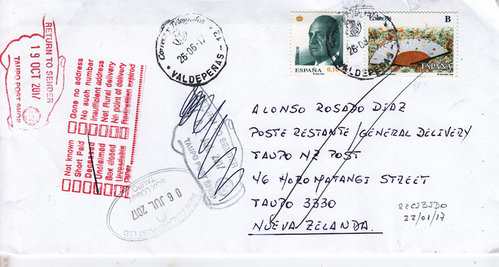 RETURN TO SENDER
19 OCT 2017
TAUPO POST SHOP
Gone no address
No such number
Insufficient address
Not Rural delivery
No point of delivery
Redirection expired
Not known
Short Paid
Deceased
Unclaimed
Box closed
Correos
26-06-17
VALDEPEÑAS
ESPAÑA
B
ALONSO ROSADO DÍAZ
POSTE RESTANTE GENERAL DELIVERY
TAUPO NZ POST
46 HOROMATANGI STREET
TAUPO 3330
NUEVA ZELANDA.
RECIBIDO
22/01/17
06 JUL 2017